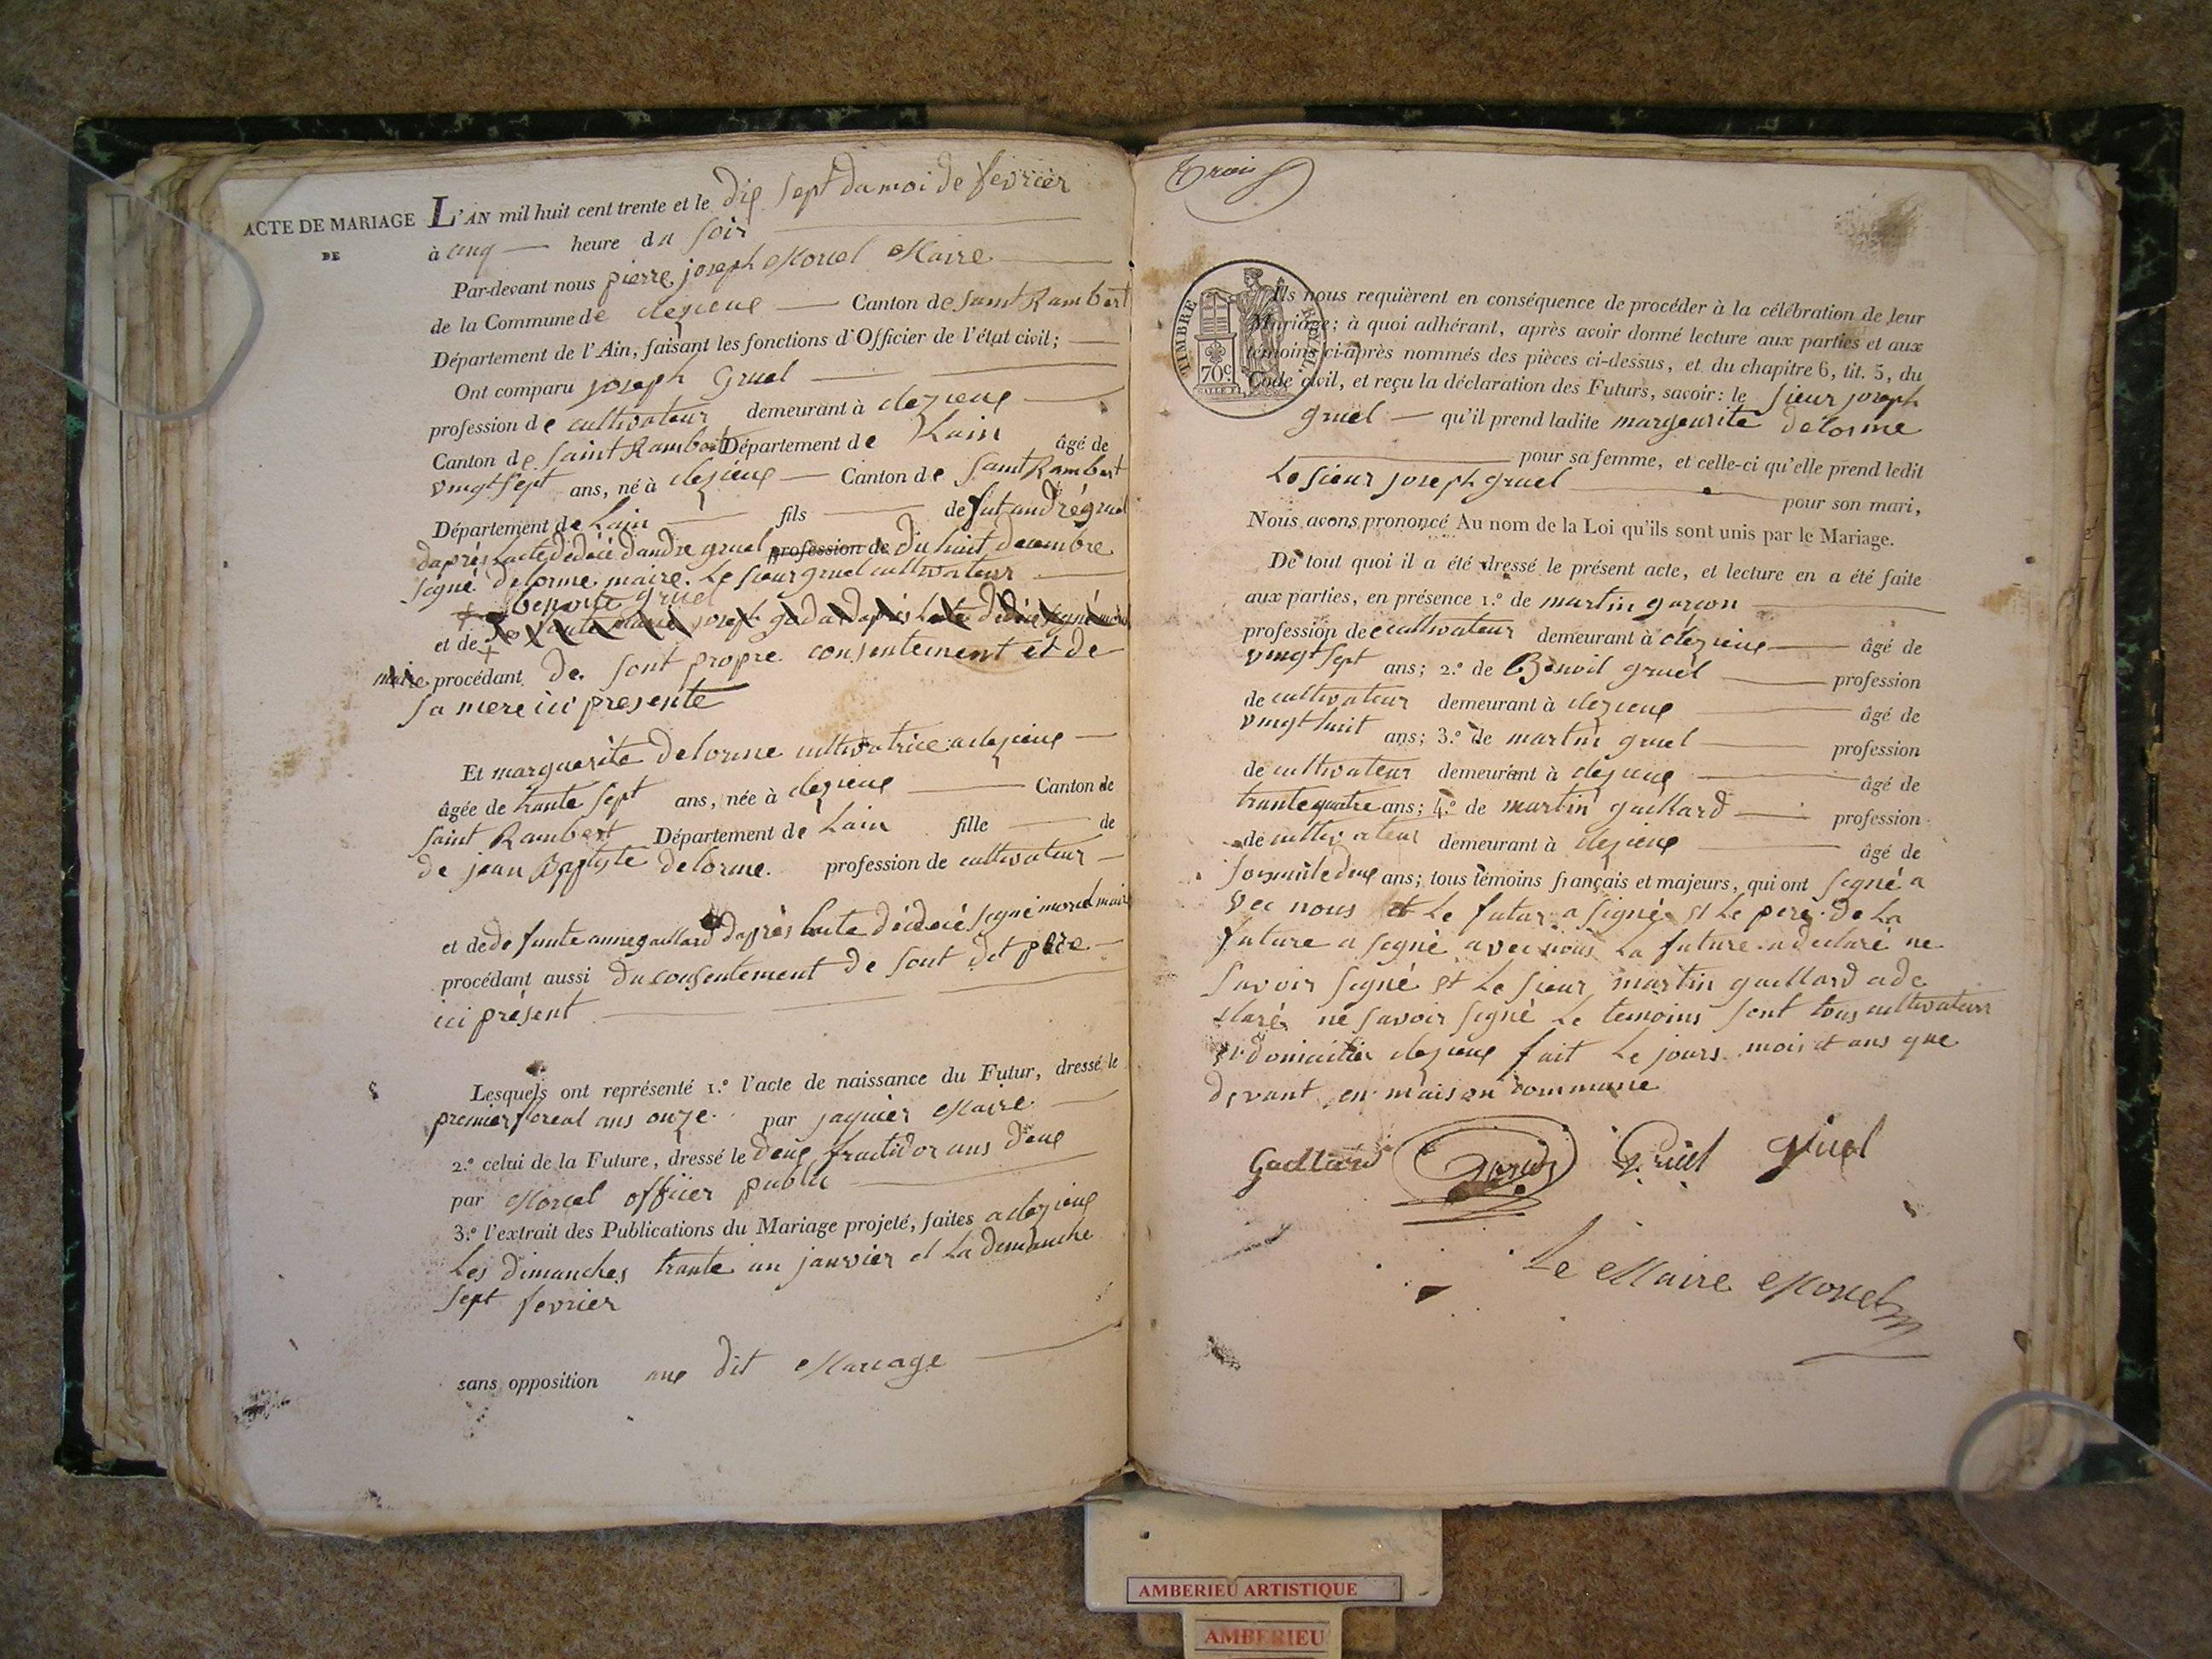 ACTE DE MARIAGE
DE
L'AN mil huit cent trente et le dix sept du moi de fevrier
à cinq heure du soir
Par-devant nous pierre joseph Morcel Maire
de la Commune de clezieux Canton de saint Rambert
Département de l'Ain, faisant les fonctions d'Officier de l'état civil;
Ont comparu joseph Gruel
profession de cultivateur demeurant à clezieux
Canton de Saint Rambert Département de Lain âgé de
vingt sept ans, né à clezieux Canton de Saint Rambert
Département de Lain fils de fut andré gruel
daprès lacte dédécé dandre gruel profession de du huit decembre
segné delorme maire. Le sieur gruel cultivateur
benoite gruel
et de joseph daprès lacte dédécé segné
maire procédant de sont propre consentement et de
sa mere ici presente
Et marguerite delorme cultivatrice a clezieux
âgée de trante sept ans, née à clezieux Canton de
saint Rambert Département de Lain fille de
de jean Baptiste delorme. profession de cultivateur
et de de funte anne gaillard daprès lacte dédécé segné morcel maire
procédant aussi du consentement de sont dit père
ici présent
Lesquels ont représenté 1.º l'acte de naissance du Futur, dressé le
premier floreal ans onze par jaquier Maire
2.º celui de la Future, dressé le deux fructidor ans deux
par Morcel officier public
3.º l'extrait des Publications du Mariage projeté, faites a clezieux
Les dimanches trante un janvier et La demanche
sept fevrier
sans opposition aux dit Mariage
Trois
TIMBRE ROYAL
70c
Ils nous requièrent en conséquence de procéder à la célébration de leur
Mariage; à quoi adhérant, après avoir donné lecture aux parties et aux
témoins ci-après nommés des pièces ci-dessus, et du chapitre 6, tit. 5, du
Code civil, et reçu la déclaration des Futurs, savoir: le sieur joseph
gruel qu'il prend ladite margeurite delorme
pour sa femme, et celle-ci qu'elle prend ledit
Le sieur joseph gruel pour son mari,
Nous avons prononcé Au nom de la Loi qu'ils sont unis par le Mariage.
De tout quoi il a été dressé le présent acte, et lecture en a été faite
aux parties, en présence 1.º de martin garçon
profession de cultivateur demeurant à clezieux âgé de
vingt sept ans; 2.º de Benoit gruel profession
de cultivateur demeurant à clezieux âgé de
vingt huit ans; 3.º de martin gruel profession
de cultivateur demeurant à clezieux âgé de
trante quatre ans; 4.º de martin gaillard profession
de cultivateur demeurant à clezieux âgé de
soixante deux ans; tous témoins français et majeurs, qui ont segné a
vec nous et Le futur a signé et Le pere de La
future a segné avec nous La future a declaré ne
savoir segné et Le sieur martin gaillard a de
claré ne savoir segné Le temoins sont tous cultivateurs
et domicilier clezieux fait Le jours mois et ans que
devant en maison commune
Gaillard Gruel Gruel
Le Maire Morcel
AMBERIEU ARTISTIQUE
AMBERIEU